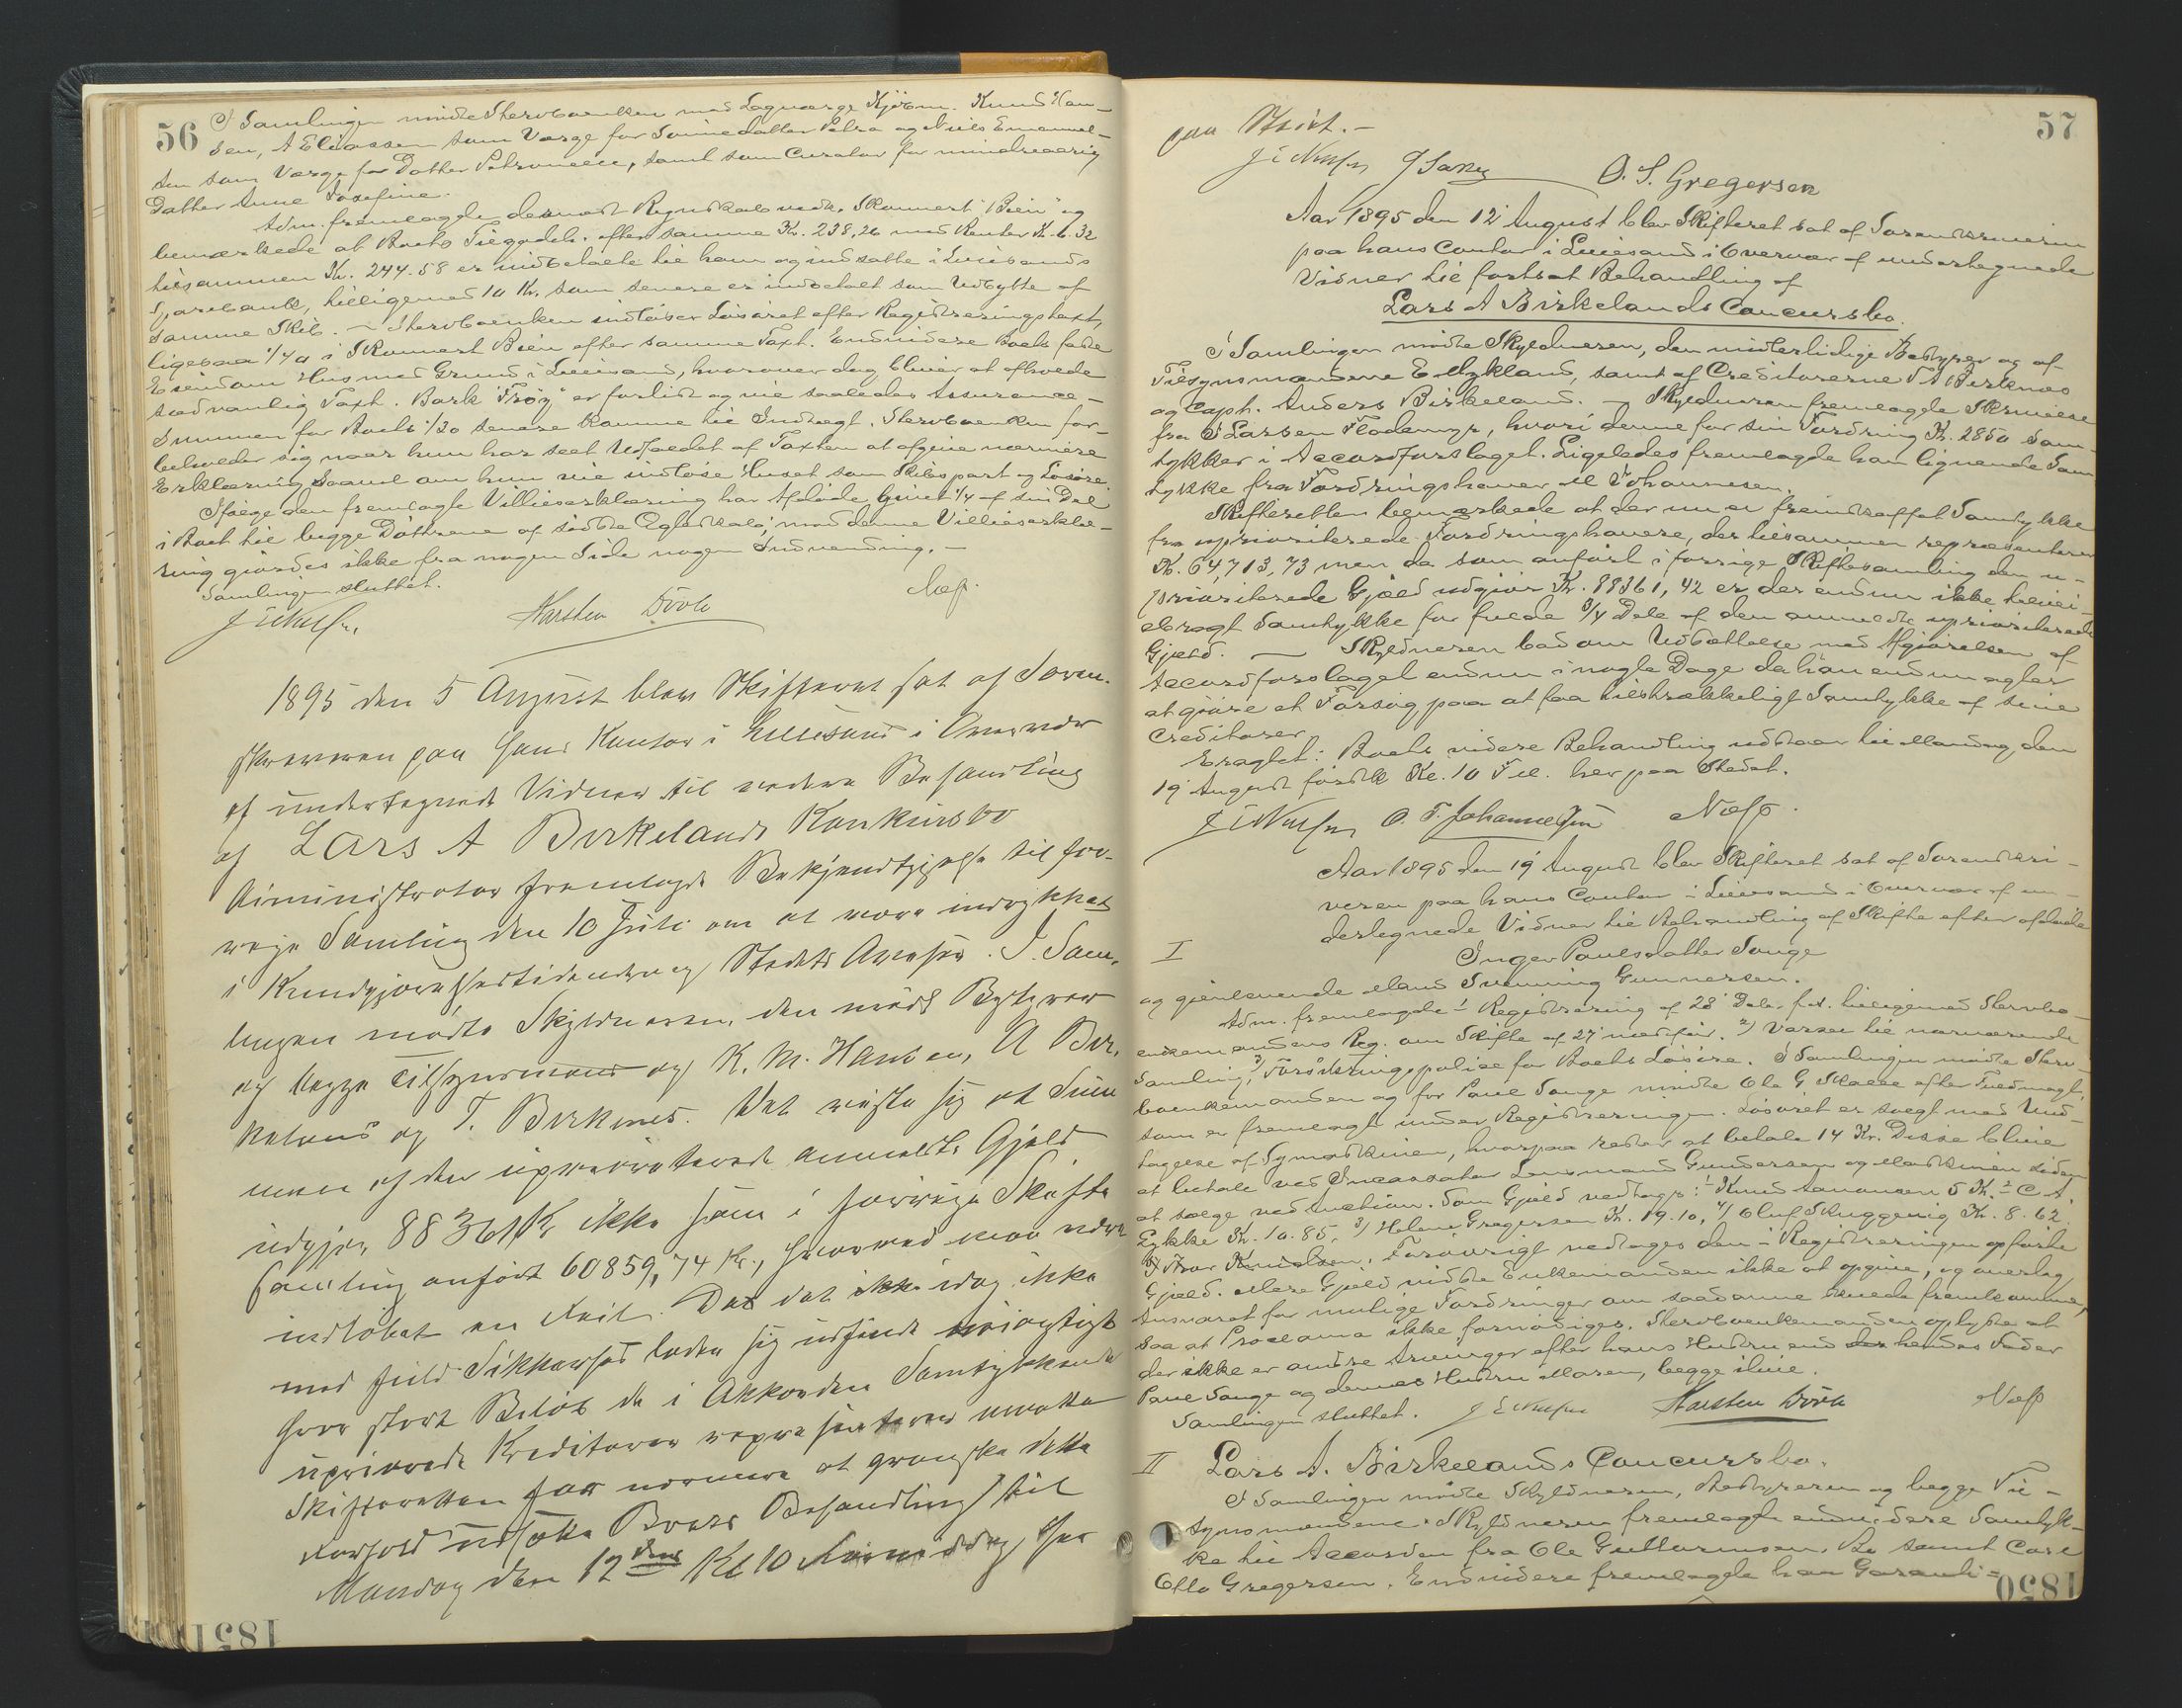 56
I Samlingen mødte Stervboenken med Laugværge Kjøbm. Knud Han-
sen, A Eliassen som Værge for Sønnedatter Petra og Nils Emanuel-
sen som Værge for Datter Petronelle, samt som Curator for mindreaarig
Datter Anne Josefine.
Adm. fremlagde dernæst Regnskab vedk. Skonnert "Bien" og
bemærkede at Boets Tilgodeh. efter samme Kr. 238.26 med Renter Kr. 6.32
tilsammen Kr. 244.58 er indbetalte til ham og indsatte i Lillesands
Sparebank, tilligemed 10 Kr. som senere er indbetalt som Udbytte af
samme Skib. - Stervboenken indløser Løsøret efter Registreringstaxt,
ligesaa 1/40 i Skonnert Bien efter samme Taxt. Endvidere Boets faste
Eiendom Hus med Grund i Lillesand, hvorover dog bliver at afholde
sædvanlig Taxt. Bark "Frøy" er forlist og vil saaledes Assurance-
Summen for Boets 1/30 senere komme til Indtægt. Stervboenken for-
beholder sig naar hun har seet Udfaldet af Taxten at afgive nærmere
Erklæring saavel om hun vil indløse Huset som Skibspart og Løsøre.
Ifølge den fremlagte Villieserklæring har Afdøde givet 1/4 af sin Del
i Boet til begge Døttrene af sidste Ægteskab; mod denne Villieserklæ-
ring gjordes ikke fra nogen Side nogen Indvending. -
Samlingen sluttet.
Næss.
Karsten Dövle
1895 den 5 August blev Skifteret sat af Soren-
skriveren paa hans Kontor i Lillesand i Overvær
af undertegnede Vidner til videre Behandling
af Lars A Birkelands Konkursbo
Administrator fremlagde Bekjendtgjørelse til for-
rige Samling den 10 Juli om at være indrykket
i Kundgjørelsestidende og Stedets Aviser. I Sam-
lingen mødte Skyldneren, den midl Bestyrer
og begge Tilsynsmænd og K. M. Hansen, A Bir-
keland og T. Birknes. Det viste sig at Sum-
men af den uprioriterede anmeldte Gjæld
udgjør 88361 Kr ikke som i forrige Skifte
samling anført 60859,74 Kr., hvorved man var
indløbet en Feil. Da det ikke idag ikke
med fuld Sikkerhed lader sig udfinde nøiagtigt
hvor stort Beløb de i Akkorden Samtykkende
upriorerede Kreditorer repræsenterer maatte
Skifteretten for nærmere at granske dette
Forhold udsætte Boets Behandling til
Mandag den 12te Kl 10 Formiddag her
1851
57
paa Stedet. -
O. S. Gregersen
Aar 1895 den 12' August blev Skifteret sat af Sorenskriveren
paa hans Contor i Lillesand i Overvær af undertegnede
Vidner til fortsat Behandling af
Lars A Birkelands Concursbo.
I Samlingen mødte Skyldneren, den midlertidige Bestyrer og af
Tilsynsmændene E Nykland, samt af Creditorerne T A Birknes
og Capt. Anders Birkeland. - Skyldneren fremlagde Skrivelse
fra I Larsen Flademyr, hvori denne for sin Fordring Kr. 2850 sam-
tykker i Accordforslaget. Ligeledes fremlagde han lignende Sam
tykke fra Fordringshaver M Johannesen.
Skifteretten bemærkede at der nu er fremskaffet Samtykke
fra upriori­terede Fordringshavere, der tilsammen repræsenterer
Kr. 64,713,73 men da som anført i forrige Skiftesamling den u-
prioriterede Gjæld udgjør Kr. 88361,42 er der endnu ikke tilvei-
ebragt Samtykke for fulde 3/4 Dele af den anmeldte uprioriterede
Gjæld. - Skyldneren bad om Udsættelse med Afgjørelsen af
Accordforslaget endnu i nogle Dage da han endnu agter
at gjøre et Forsøg paa at faa tilstrækkeligt Samtykke af sine
Creditorer.
Eragtet: Boets videre Behandling udstaar til Mandag den
19' August førstk Kl. 10 Fm. her paa Stedet.
O. T. Johannesen Næss.
Aar 1895 den 19' August blev Skifteret sat af Sorenskri-
veren paa hans Contor i Lillesand i Overvær af un-
dertegnede Vidner til Behandling af Skifte efter afdøde
I
Inger Paulsdatter Sange
og gjenlevende Mand Svenning Gunnersen.
Adm. fremlagde 1' Registrering af 28' Dec. f.A. tilligemed Stervbo-
enkemandens Beg. om Skifte af 27' næstfør. 2) Varsel til nærværende
Samling, 3) Forsikringspolice for Boets Løsøre. I Samlingen mødte Sterv-
boenkemanden og for Paul Sange mødte Ole G Skaale efter Fuldmagt,
som er fremlagt under Registreringen. Løsøret er solgt med Und-
tagelse af Symaskinen, hvorpaa rester at betale 14 Kr. Disse blive
at betale ved Incassator Lensmand Gundersen og Maskinen siden
at sælge ved Auction. Som Gjæld vedtages: 1' Knud Aanonsen 5 Kr. 2' C A.
Lykke Kr. 10.85, 3) Helene Gregersen Kr. 19.10, 4) Oluf Skuggevig Kr. 8.62.
5) Ivar Knudsen. Forøvrigt vedtages den i Registreringen opførte
Gjæld. Mere Gjæld vidste Enkemanden ikke at opgive, og overtog
Ansvaret for mulige Fordringer om saadanne skulde fremkomme,
saa at Proclama ikke fornødiges. Stervboenkemanden oplyste at
der ikke er andre Arvinger efter hans Hustru end hendes Fader
Paul Sange og dennes Hustru Maren, begge ilive.
Samlingen sluttet. Karsten Dövle Næss
II Lars A. Birkelands Concursbo.
I Samlingen mødte Skyldneren, Bestyreren og begge Til-
synsmændene. Skyldneren fremlagde endvidere Samtyk-
ke til Accorden fra Ole Guttormsen, Bo samt Carl
Otto Gregersen. Endvidere fremlagde han Garanti-
1850